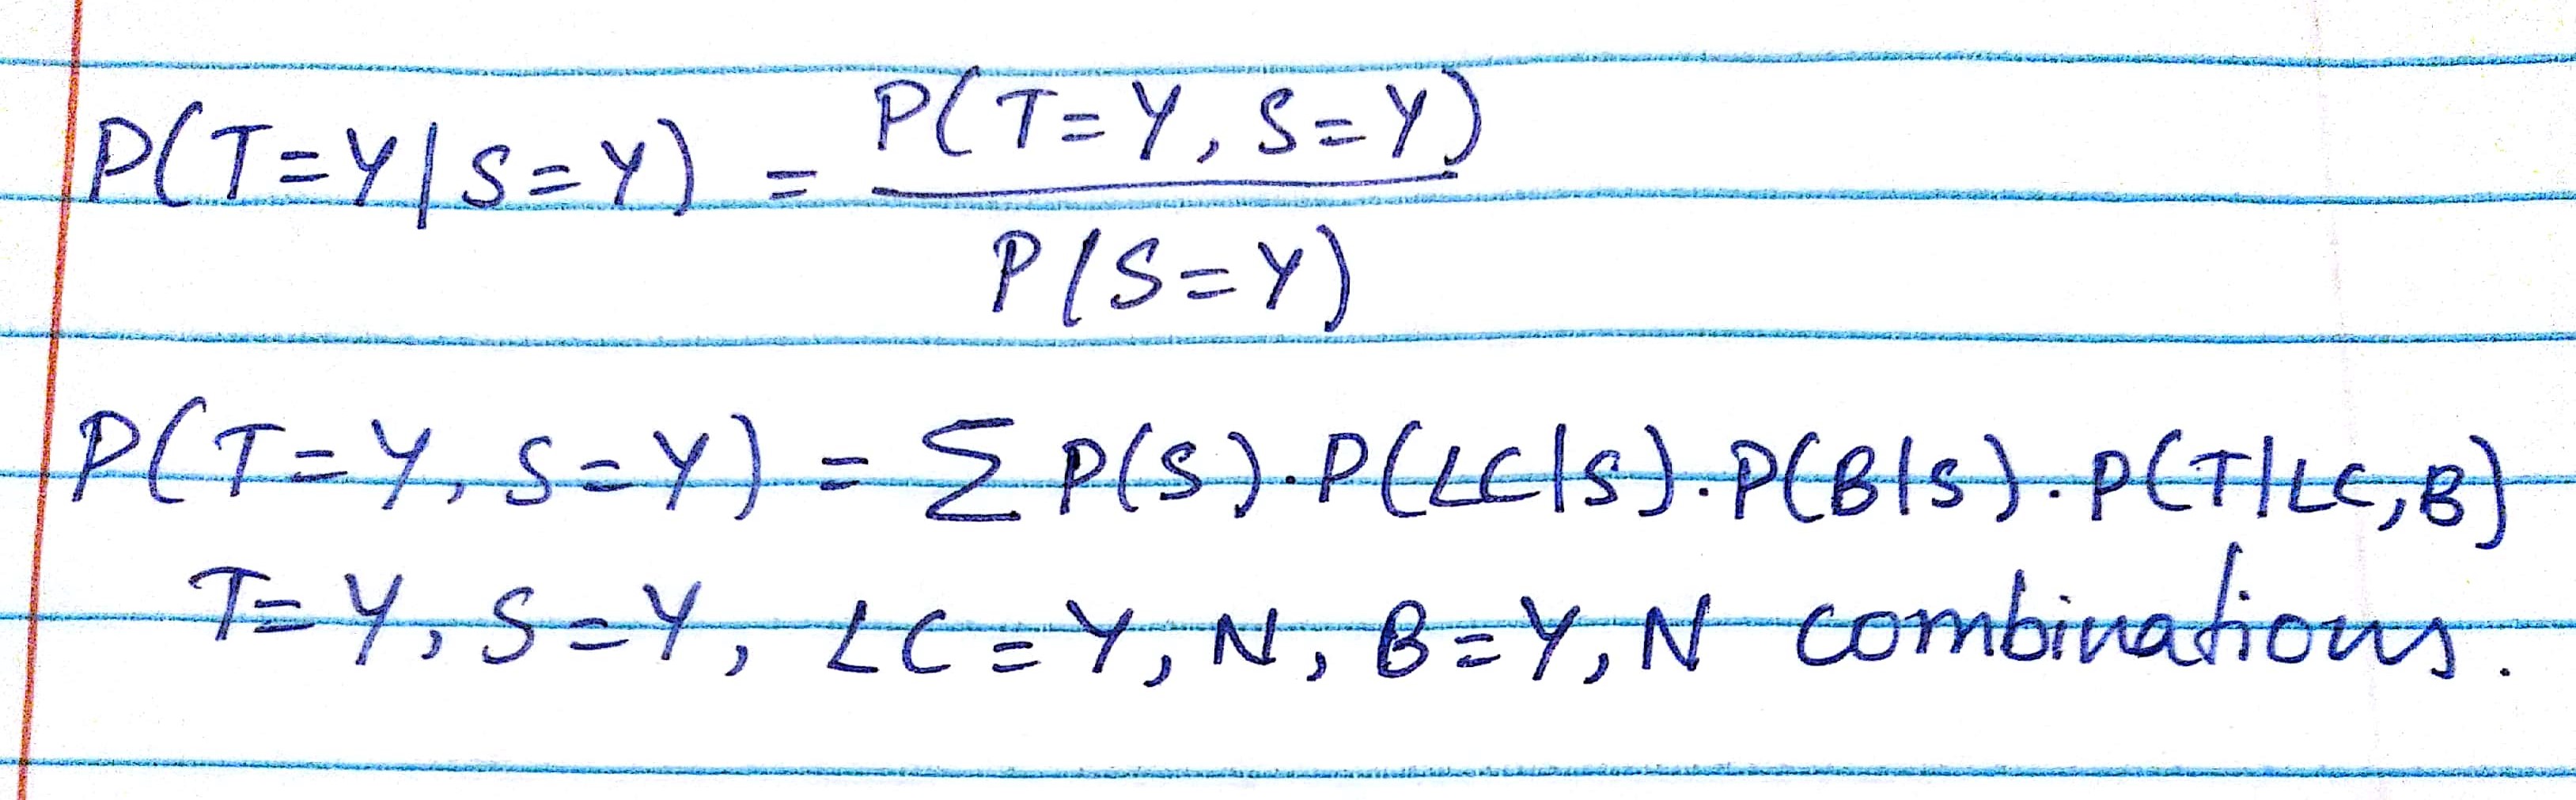 P(T=Y|S=Y) = P(T=Y, S=Y) / P(S=Y)
P(T=Y, S=Y) = Σ P(S).P(LC|S).P(B|S).P(T|LC,B)
T=Y, S=Y, LC=Y, N, B=Y, N combinations.